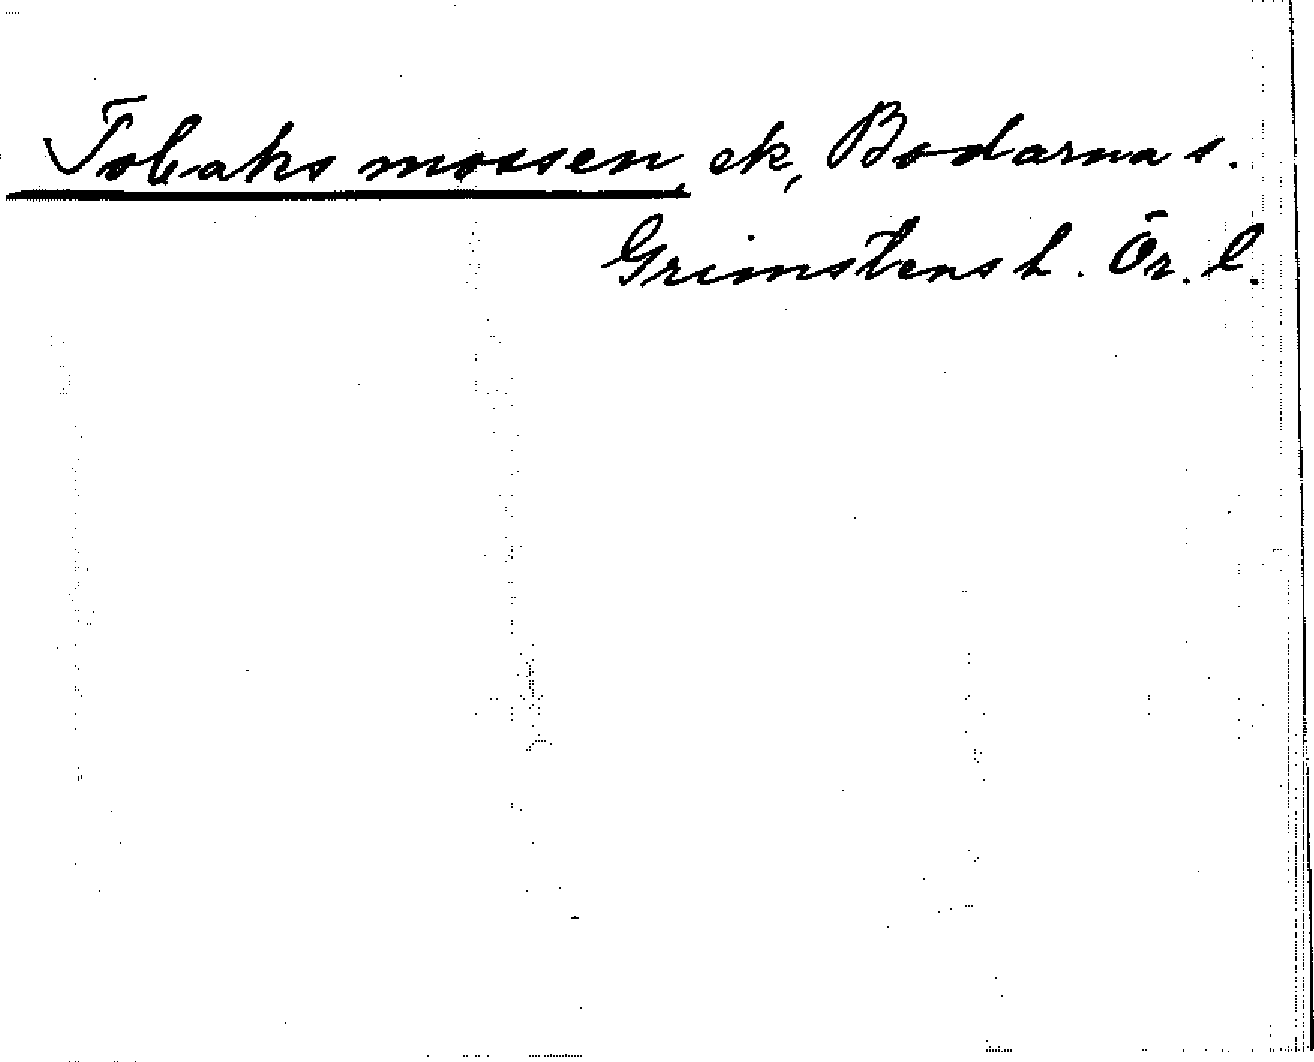 Tobaksmossen, ek, Bodarna s.
Grimstens h. Ör. l.